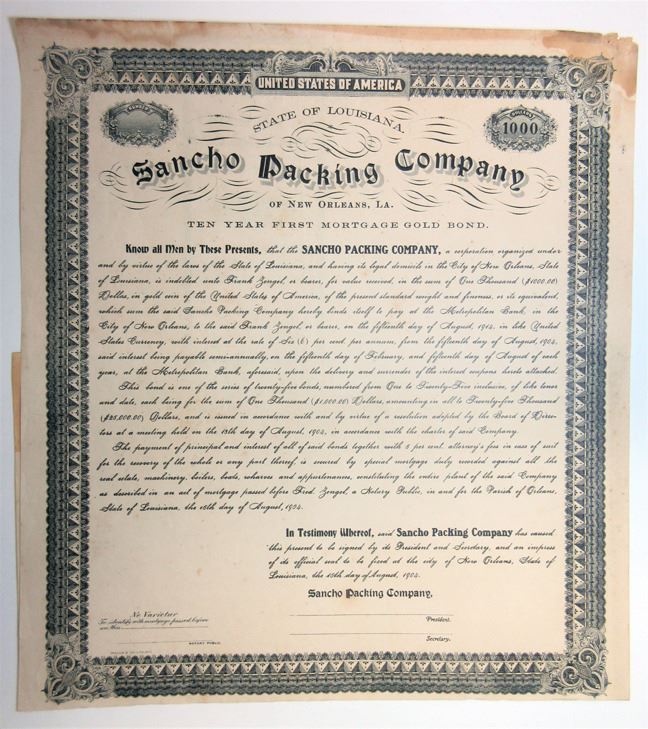 UNITED STATES OF AMERICA
STATE OF LOUISIANA.
NUMBER
DOLLARS
1000
Sancho Packing Company
OF NEW ORLEANS, LA.
TEN YEAR FIRST MORTGAGE GOLD BOND.
Know all Men by These Presents, that the SANCHO PACKING COMPANY, a corporation organized under
and by virtue of the laws of the State of Louisiana, and having its legal domicile in the City of New Orleans, State
of Louisiana, is indebted unto Frank Zengel, or bearer, for value received, in the sum of One Thousand ($1000.00)
Dollars, in gold coin of the United States of America, of the present standard weight and fineness, or its equivalent,
which sum the said Sancho Packing Company hereby binds itself to pay at the Metropolitan Bank, in the
City of New Orleans, to the said Frank Zengel, or bearer, on the fifteenth day of August, 1914, in like United
States Currency, with interest at the rate of Six (6) per cent. per annum, from the fifteenth day of August, 1904,
said interest being payable semi-annually, on the fifteenth day of February, and fifteenth day of August of each
year, at the Metropolitan Bank, aforesaid, upon the delivery and surrender of the interest coupons hereto attached.
This bond is one of the series of twenty-five bonds, numbered from One to Twenty-Five inclusive, of like tenor
and date, each being for the sum of One Thousand ($1,000.00) Dollars, amounting in all to Twenty-five Thousand
($25,000.00) Dollars, and is issued in accordance with and by virtue of a resolution adopted by the Board of Direc-
tors at a meeting held on the 13th day of August, 1904, in accordance with the charter of said Company.
The payment of principal and interest of all of said bonds together with 5 per cent. attorney's fees in case of suit
for the recovery of the whole or any part thereof, is secured by special mortgage duly recorded against all the
real estate, machinery, boilers, boats, wharves and appurtenances, constituting the entire plant of the said Company
as described in an act of mortgage passed before Fred. Zengel, a Notary Public, in and for the Parish of Orleans,
State of Louisiana, the 15th day of August, 1904.
In Testimony Whereof, said Sancho Packing Company has caused
this present to be signed by its President and Secretary, and an impress
of its official seal to be fixed at the city of New Orleans, State of
Louisiana, the 15th day of August, 1904.
Sancho Packing Company,
President.
Secretary.
Ne Varietur
To identify with mortgage passed before
me this
NOTARY PUBLIC